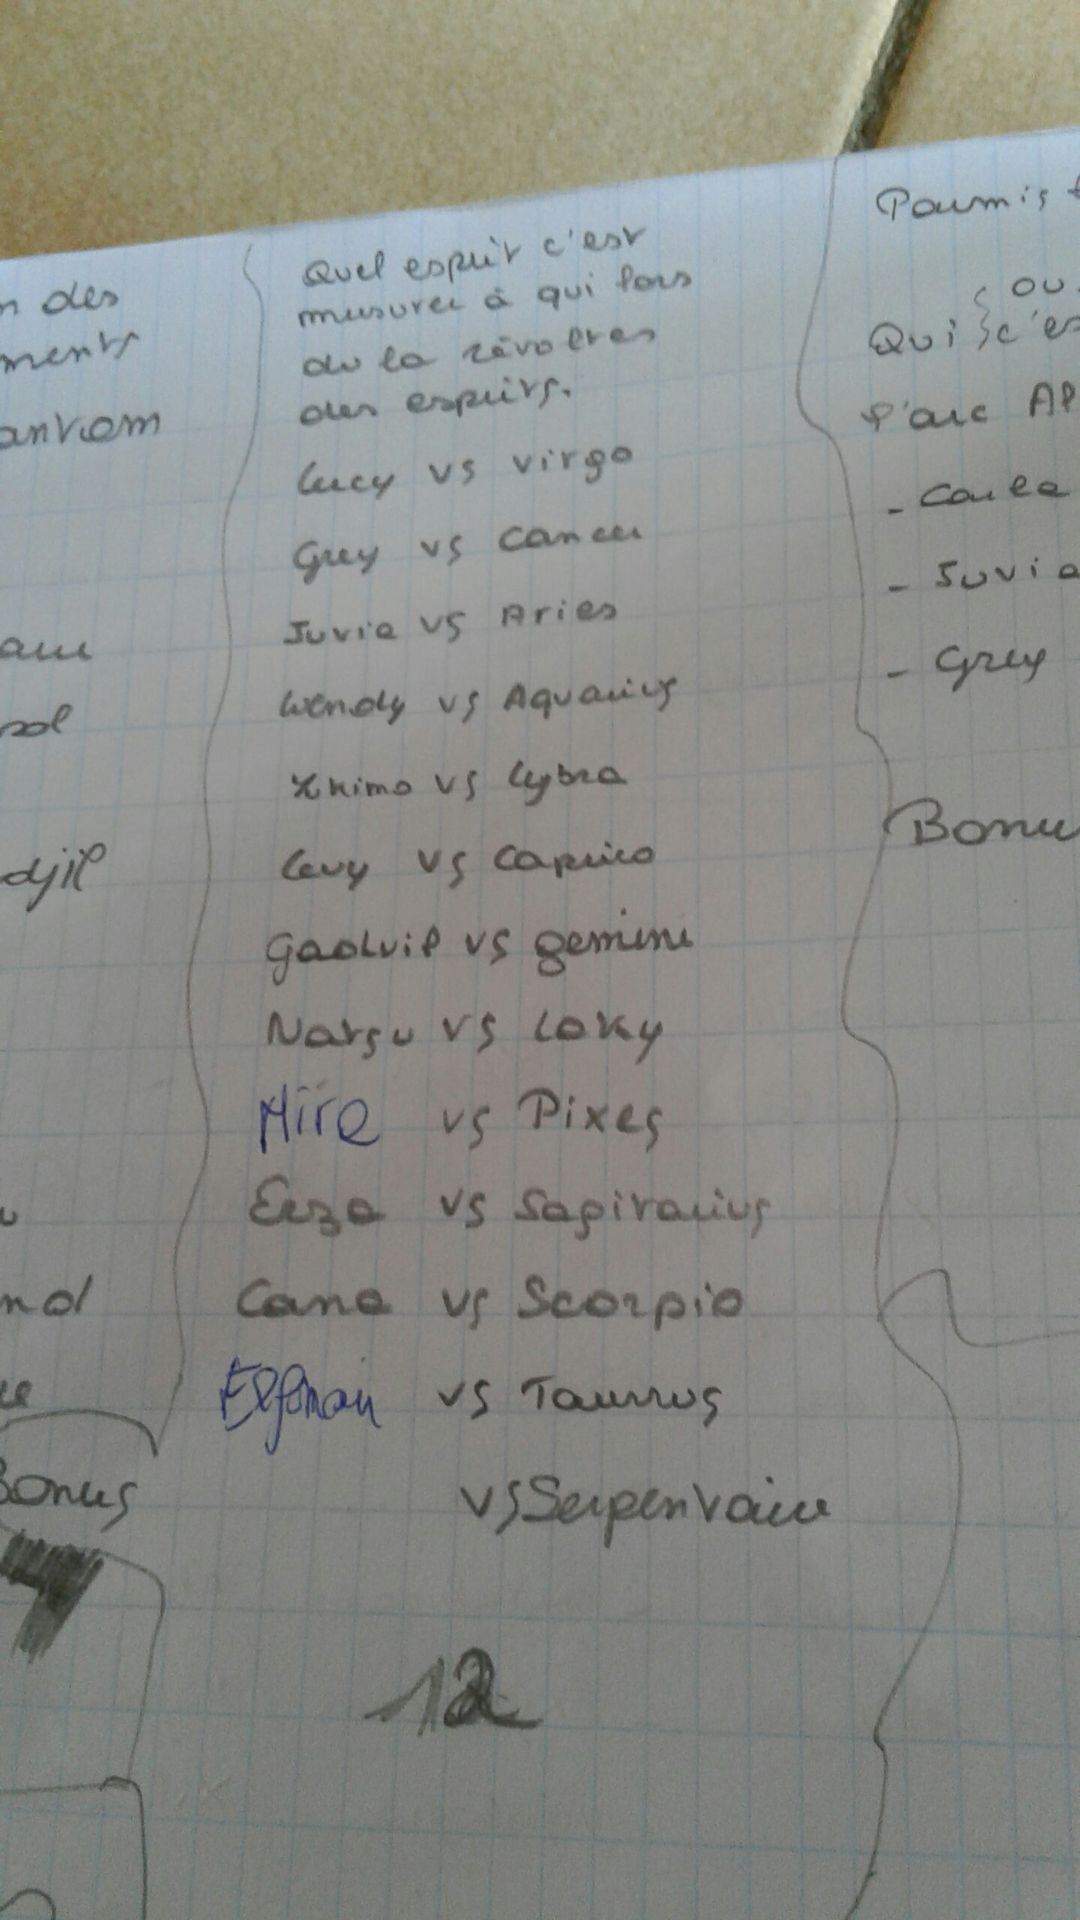 n des
ments
antom
am
sol
djil
u
nd
ue
Bonus
Quel esprit c'est
mesurer à qui lors
de la révoltes
des esprits.
Lucy vs Virgo
Grey vs Cancer
Juvia vs Aries
Wendy vs Aquarius
vs Lybra
Levy vs Caprico
vs gemini
Natsu vs Loky
Mira vs Pixes
Erza vs Sagitarius
Cana vs Scorpio
Elfman vs Taurus
vs Serpentaire
12
Parmis
ou
Qui c'es
l'arc
- Carla
- Juvia
- Grey
Bonu